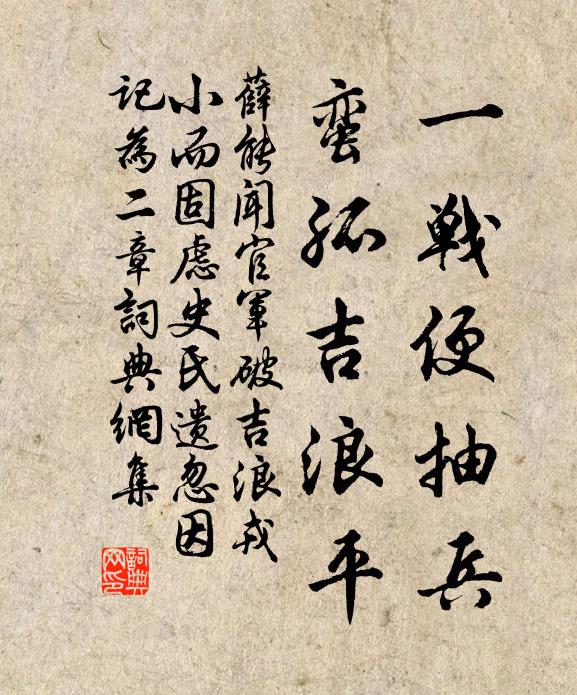 一戦便抽兵
蛮孤吉浪平
薛能聞官軍破吉浪戎
小而固慮史氏遺忽因
記為二章詞典網集